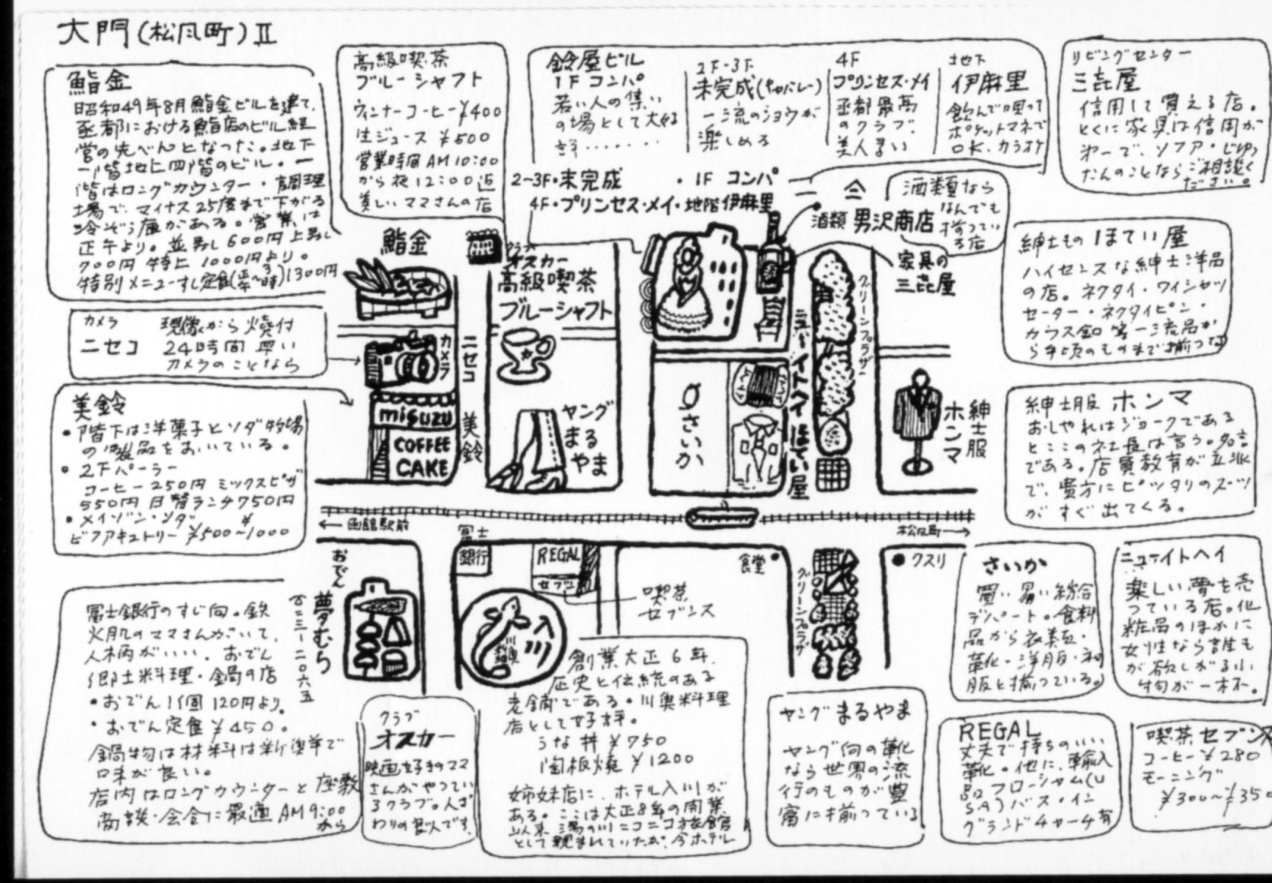 大門(松風町)Ⅱ
鮨金
昭和49年8月鮨金ビルを建て、
函都における鮨店のビル経
営の先べんとなった。地下
一階地上四階のビル。一
階はロングカウンター・調理
場で、マイナス25度まで下がる
冷ぞう庫がある。営業は
正午より。並寿し600円上寿し
700円 特上1000円より。
特別メニューすし定食1300円
高級喫茶
ブルーシャフト
ウィンナーコーヒー¥400
生ジュース ¥500
営業時間AM10:00
から夜12:00迄
美しいママさんの店
鈴屋ビル
1F コンパ
若い人の集い
の場として大好
評………
2F-3F
未完成(キャバレー)
一流のショウが
楽しめる
4F
プリンセス・メイ
函都最高
のクラブ
美人ぞろい
地下
伊麻里
飲んで唄って
ポケットマネーで
OK、カラオケ
リビングセンター
三㐂屋
信用して買える店。
とくに家具は信用が
第一で、ソファ・じゅう
たんのことならご相談く
ださい。
2~3F・未完成 ・1F コンパ
4F・プリンセス・メイ・地階伊麻里
酒類 男沢商店
酒類なら
なんでも
揃ってい
る店
家具の
三㐂屋
カメラ
ニセコ
現像から焼付
24時間 早い
カメラのことなら
鮨金
クラブ
オスカー
高級喫茶
ブルーシャフト
カメラ
ニセコ
misuzu
COFFEE
CAKE
美鈴
ヤング
まるやま
さいか
ニューイトヘイ
ほてい屋
グリーンプラザ
紳士服
ホンマ
紳士もの ほてい屋
ハイセンスな紳士洋品
の店。ネクタイ・ワイシャツ
セーター・ネクタイピン・
カフス釦 等一流品か
ら手頃のものまで揃っている
美鈴
・階下は洋菓子とソダ物場
の製品をおいている。
・2Fパーラー
コーヒー250円 ミックスピザ
550円 日替ランチ750円
・メイゾン・ソダ
ビアファクトリー ¥500~1000
紳士服 ホンマ
おしゃれはジョークである
とここの社長は言う。名言
である。店員教育が立派
で、貴方にピッタリのスーツ
がすぐ出てくる。
←函館駅前
松風町→
おでん
夢むら
富士
銀行
REGAL
セブン
入川
川魚料理
喫茶
セブンス
食堂
グリーンプラザ
クスリ
富士銀行のすじ向。鉄
火肌のママさんがいて、
人柄がいい。おでん
郷土料理・鍋の店
・おでん1個120円より。
・おでん定食¥450。
鍋物は材料は新鮮で
味が良い。
店内はロングカウンターと座敷
商談・会合に最適AM9:00
から
クラブ
オスカー
映画好きのママ
さんがやってい
るクラブ。人ざ
わりの良い人です。
創業大正6年。
歴史と伝統のある
老舗である。川魚料理
店として好評。
うな丼¥950
陶板焼¥1200
姉妹店に、ホテル入川が
ある。ここは大正8年の開業
以来湯の川ニコニコ旅館
として親まれていたが、今ホテル
ヤング まるやま
ヤング向の靴
なら世界の流
行のものが豊
富に揃っている
さいか
買い易い綜合
デパート。食料
品から衣類・
靴・洋服・和
服と揃っている。
ニューイトヘイ
楽しい夢を売
っている店。化
粧品のほかに
女性なら誰も
が欲しがる小
物が一杯。
REGAL
丈夫で持ちのいい
靴。他に、輸入
品フローシャム(U
SA)バス・イン
グランドチャーチ有
喫茶セブンス
コーヒー¥280
モーニング
¥300~¥350